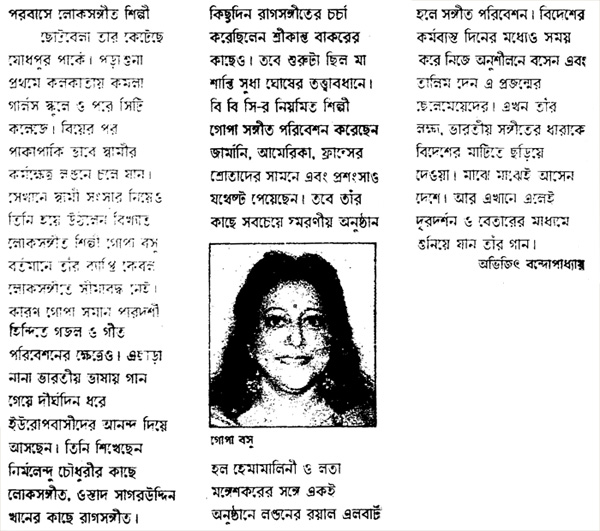 পরবাসে লোকসঙ্গীত শিল্পী
ছোটবেলা তার কেটেছে
যোধপুর পার্কে। পড়াশুনা
প্রথমে কলকাতায় কমলা
গার্লস স্কুলে ও পরে সিটি
কলেজে। বিয়ের পর
পাকাপাকি ভাবে স্বামীর
কর্মক্ষেত্র লন্ডনে চলে যান।
সেখানে স্বামী সংসার নিয়েও
তিনি হয়ে উঠলেন বিখ্যাত
লোকসঙ্গীত শিল্পী গোপা বসু
বর্তমানে তাঁর ব্যাপ্তি কেবল
লোকসঙ্গীতে সীমাবদ্ধ নেই।
কারণ গোপা সমান পারদর্শী
হিন্দিতে গজল ও গীত
পরিবেশনের ক্ষেত্রেও। এছাড়া
নানা ভারতীয় ভাষায় গান
গেয়ে দীর্ঘদিন ধরে
ইউরোপবাসীদের আনন্দ দিয়ে
আসছেন। তিনি শিখেছেন
নির্মলেন্দু চৌধুরীর কাছে
লোকসঙ্গীত, ওস্তাদ সাগরউদ্দিন
খানের কাছে রাগসঙ্গীত।
কিছুদিন রাগসঙ্গীতের চর্চা
করেছিলেন শ্রীকান্ত বাকরের
কাছেও। তবে শুরুটা ছিল মা
শান্তি সুধা ঘোষের তত্ত্বাবধানে।
বি বি সি-র নিয়মিত শিল্পী
গোপা সঙ্গীত পরিবেশন করেছেন
জার্মানি, আমেরিকা, ফ্রান্সের
শ্রোতাদের সামনে এবং প্রশংসাও
যথেষ্ট পেয়েছেন। তবে তাঁর
কাছে সবচেয়ে স্মরণীয় অনুষ্ঠান
গোপা বসু
হল হেমামালিনী ও লতা
মঙ্গেশকরের সঙ্গে একই
অনুষ্ঠানে লন্ডনের রয়াল এলবার্ট
হলে সঙ্গীত পরিবেশন। বিদেশের
কর্মব্যস্ত দিনের মধ্যেও সময়
করে নিজে অনুশীলনে বসেন এবং
তালিম দেন এ প্রজন্মের
ছেলেমেয়েদের। এখন তাঁর
লক্ষ্য, ভারতীয় সঙ্গীতের ধারাকে
বিদেশের মাটিতে ছড়িয়ে
দেওয়া। মাঝে মাঝেই আসেন
দেশে। আর এখানে এলেই
দূরদর্শন ও বেতারের মাধ্যমে
শুনিয়ে যান তাঁর গান।
অভিজিৎ বন্দোপাধ্যায়